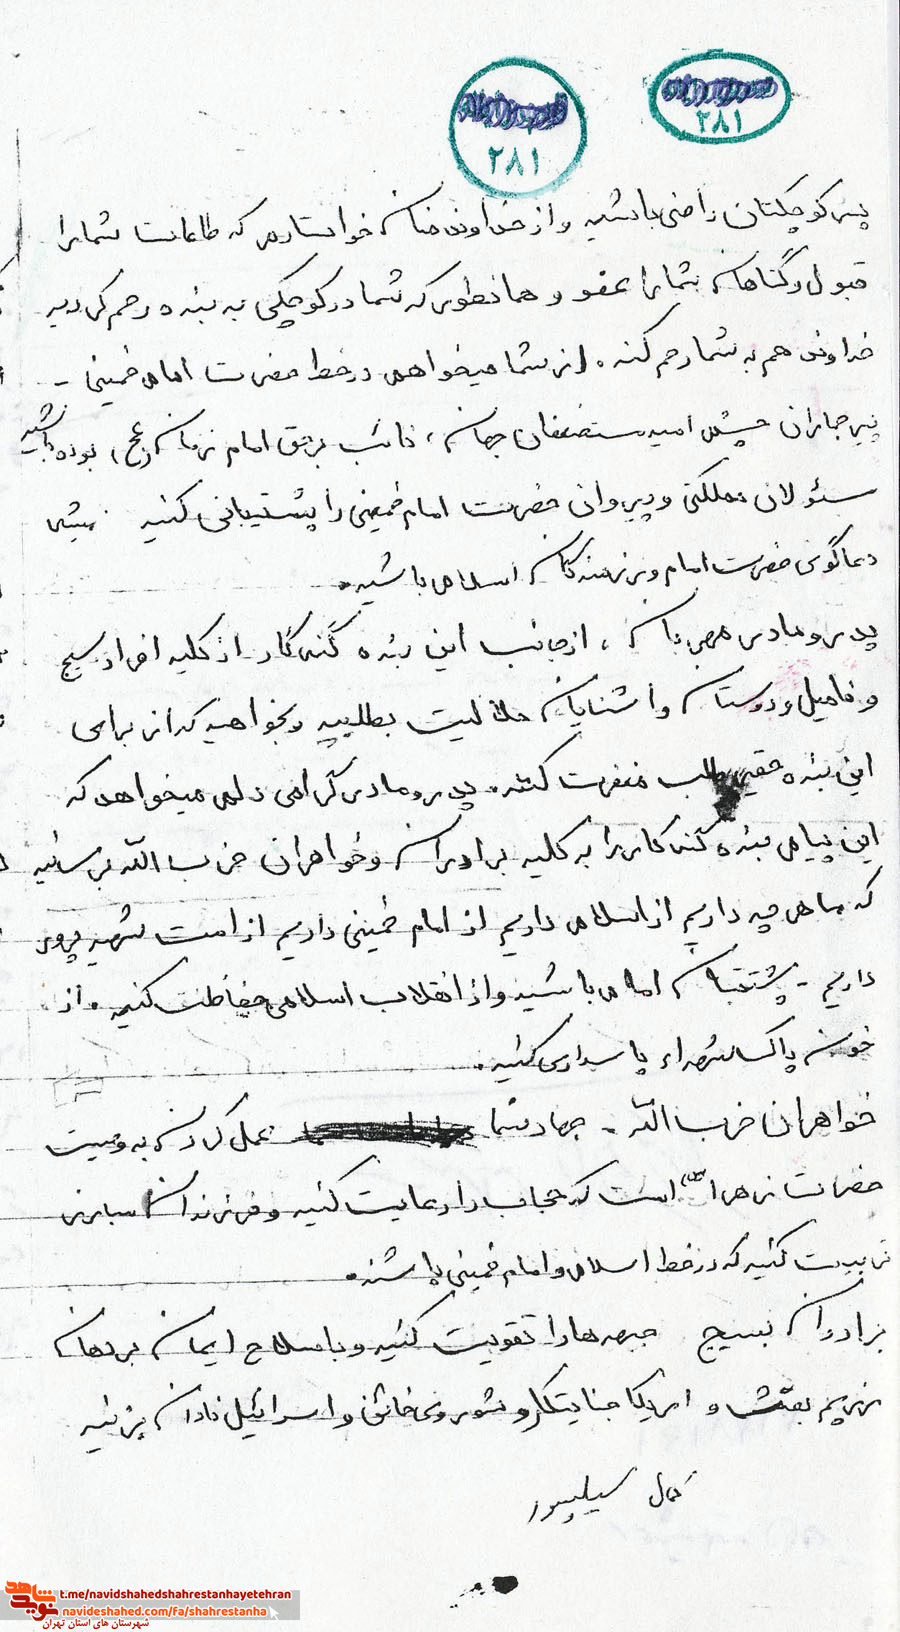 ۲۸۱
۲۸۱
پسر کوچکتان راضی باشید و از خداوند منان خواستارم که طاعات شما را
قبول و گناهان شما را عفو و همانطور که شما در کوچکی به بنده رحم کردید
خداوند هم به شما رحم کند. از شما میخواهم در خط حضرت امام خمینی -
پیر جماران چشم امید مستضعفان جهان، نائب برحق امام زمان (عج) بوده باشید
مسئولان مملکتی و پیروان حضرت امام خمینی را پشتیبانی کنید
دعاگوی حضرت امام و رزمندگان اسلام باشید.
پدر و مادر مهربان، از جانب این بنده گنه‌کار از کلیه افراد بسیج
و فامیل و دوستان و آشنایان حلالیت بطلبید و بخواهید که از برای
این بنده حقیر طلب مغفرت کنند. پدر و مادر گرامی دلم میخواهد که
این پیام بنده گنه‌کار را به کلیه برادران و خواهران حزب الله برسانید
که ما هر چه داریم از اسلام داریم از امام خمینی داریم از امت شهید پرور
داریم - پشتیبان امام باشید و از انقلاب اسلامی حفاظت کنید. از
خون پاک شهداء پاسداری کنید.
خواهران حزب الله - جهاد شما عمل کردن به وصیت
حضرت زهرا (س) است که حجاب را رعایت کنید و فرزندان مبارز
تربیت کنید که در خط اسلام و امام خمینی باشند.
برادران بسیج جبهه ها را تقویت کنید و با سلاح ایمان بر دهان
رژیم بعث و امریکا جنایتکار و شوروی خائن و اسرائیل نادان بزنید
کمال
t.me/navidshahedshahrestanhayetehran
navideshahed.com/fa/shahrestanha
نوید شاهد
شهرستان های استان تهران